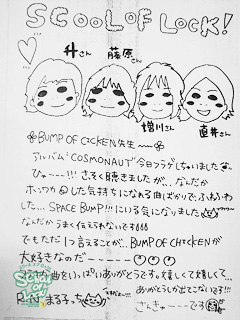 SCOOL OF LOCK!
升さん
藤原さん
増川さん
直井さん
BUMP OF CHICKEN先生
アルバム"COSMONAUT"今日フラゲしちゃいました
ひゃーー!!! さっそく聴きましたが、なんだか
ホッコリした気持ちになれる曲ばかりで、ふわふわ
した… SPACE BUMP!!! にいる気になりました
なんだかうまく伝えられないです
でもただ1つ言えることが… BUMP OF CHICKENが
大好きなのだーーー
曲をいっぱいありがとうです。嬉しくて嬉しくて…
ありがとうしか出てこないです!!!
R.N まる子っち
さんきゅーーです